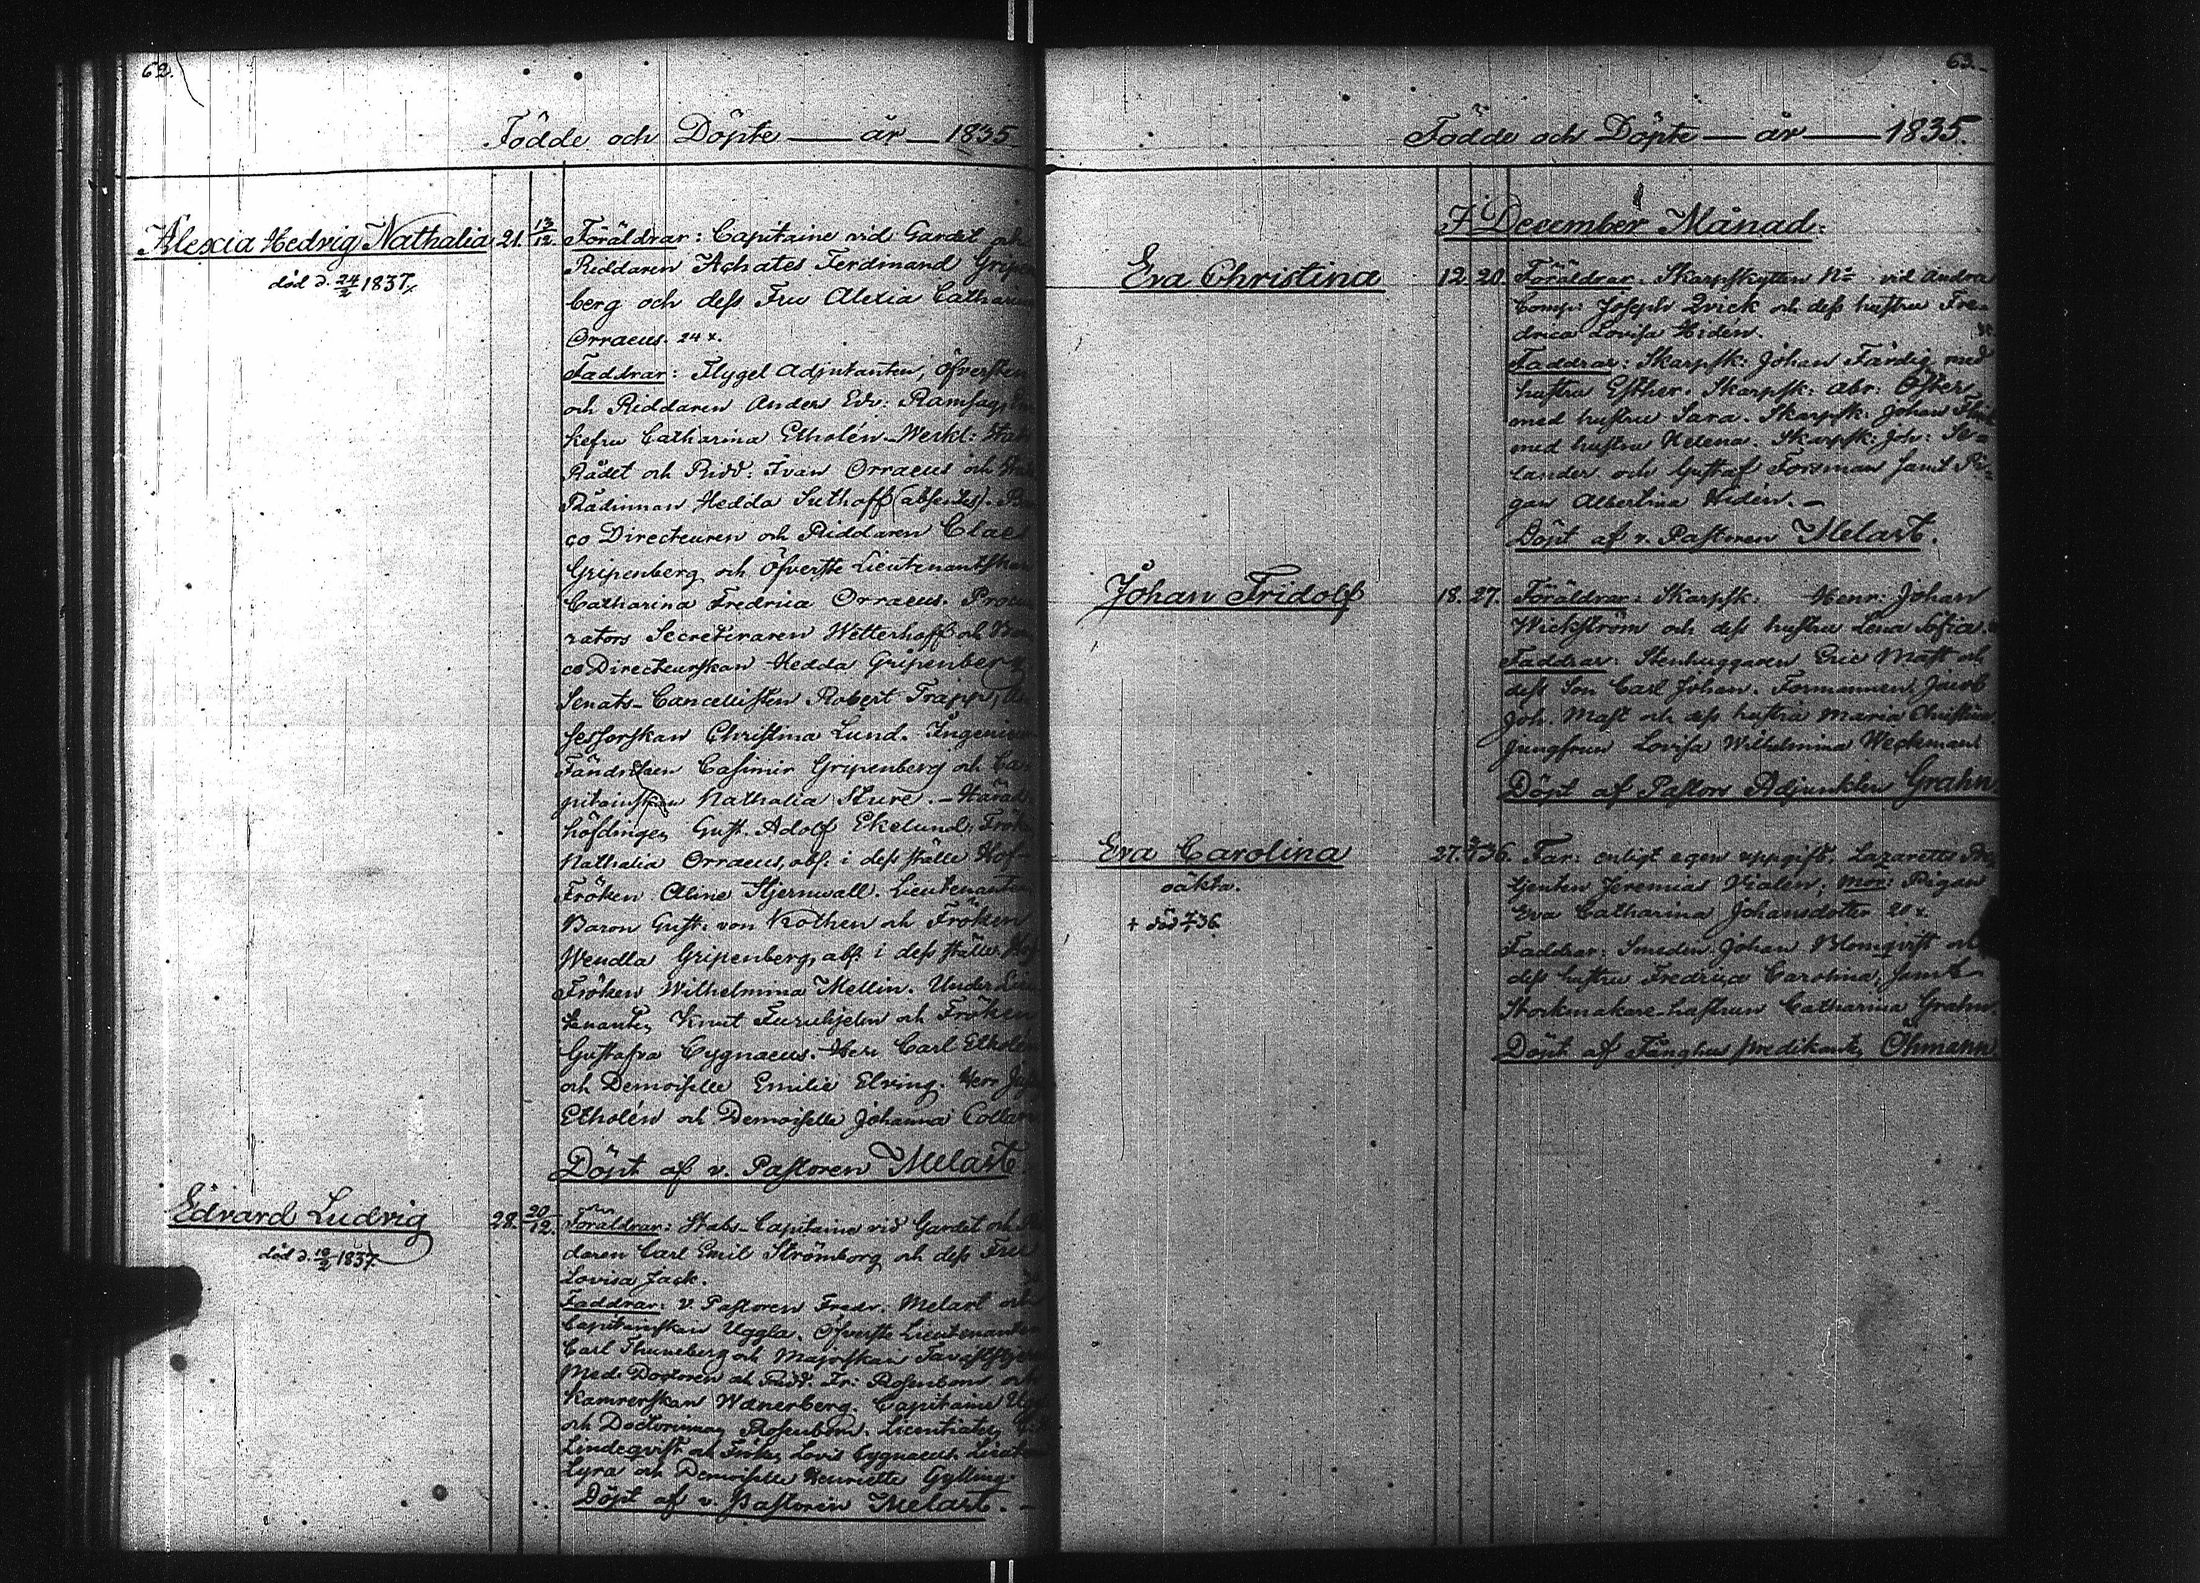 62.
Födde och Döpte — år — 1835
Alexia Hedvig Nathalia 21. 13/12.
död d. 24/2 1837.
Föräldrar: Capitaine vid Gardet och
Riddaren Achates Ferdinand Gripen
berg och dess Fru Alexia Catharina
Orraeus. 24 x.
Faddrar: Flygel Adjutanten, Öfversten
och Riddaren Anders Edv: Ramsay,
kefru Catharina Etholén. Werkl: Stats
Rådet och Ridd: Ivan Orraeus och
Rådinnan Hedda Suthoff (absentes).
co Directeuren och Riddaren Claes
Gripenberg och Öfverste Lieutenantskan
Catharina Fredrica Orraeus. Procu
rators Secreteraren Wetterhoff och Ban
co Directeurskan Hedda Gripenberg
Senats-Cancellisten Robert Trapp, As
sessorskan Christina Lund. Ingenieur
Fändricken Casimir Gripenberg och Ca
pitainskan Nathalia Sture. — Härads
höfdingen Gust. Adolf Ekelund, Frök
Nathalia Orraeus, abs. i dess ställe Hof-
Fröken Aline Stjernvall. Lieutenanten
Baron Gust: von Kothen och Fröken
Wendla Gripenberg, abs. i dess ställe Hof
Fröken Wilhelmina Mellin. Under Lieu
tenanten Knut Furuhjelm och Fröken
Gustafva Cygnaeus. Herr Carl Etholén
och Demoiselle Emilie Elving. Herr
Etholén och Demoiselle Johanna Collan
Döpt af v. Pastoren Melart
Edvard Ludvig 28. 20/12.
död d. 10/2 1837.
Föräldrar: Stabs-Capitaine vid Gardet och
daren Carl Emil Strömborg och dess Fru
Lovisa Jack.
Faddrar: v. Pastoren Fredr. Melart och
Capitainskan Uggla. Öfverste Lieutenanten
Carl Thuneberg och Majorskan
Med: Doctoren och Ridd: Fr: Rosenbom och
Kamrerskan Wanerberg. Capitaine
och Doctorinnan Rosenbom. Licentiaten
Lindeqvist och Frök: Lovis Cygnaeus.
Lyra och Demoiselle Henriette Gylling.
Döpt af v. Pastoren Melart. —
63.
Födde och Döpte — år — 1835.
I December Månad.
Eva Christina 12. 20.
Föräldrar. Skarpskytten No vid Andra
Comp: Joseph Qvick och dess hustru Fre-
drica Lovisa Hidén.
Faddrar: Skarpsk: Johan Färdig med
hustru Esther. Skarpsk: Abr: Öster
med hustru Sara. Skarpsk: Johan
med hustru Helena. Skarpsk: Joh: Se=
lander och Gustaf Forsman samt Pi=
gan Albertina Hidén. —
Döpt af v. Pastoren Melart.
Johan Fridolf 18. 27.
Föräldrar: Skarpsk: Henr: Johan
Wickström och dess hustru Lena Sofia.
Faddrar: Stenhuggaren Eric Mast och
dess Son Carl Johan. Formannen Jacob
Joh. Mast och dess hustru Maria Christina
Jungfrun Lovisa Wilhelmina Weckman
Döpt af Pastors Adjunkten Grahn
Eva Carolina
oäkta.
Far: enligt egen uppgift. Lazaretts Be
tjenten Jeremias Vialen; Mor: Pigan
Eva Catharina Johansdotter 20 x.
Faddrar: Smeden Johan Blomqvist och
dess hustru Fredrica Carolina, samt
Stockmakare-hustrun Catharina Grahn.
Döpt af Fånghus predikanten Öhmann